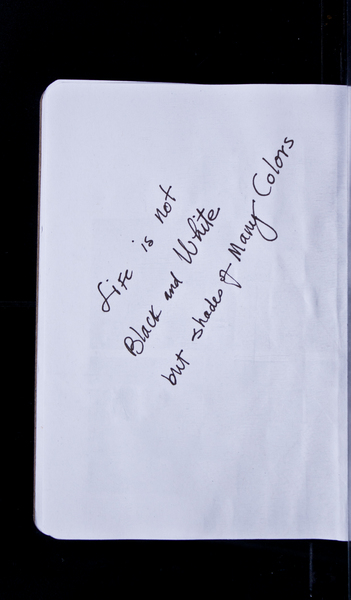 Life is not
Black and White
but shades of Many Colors